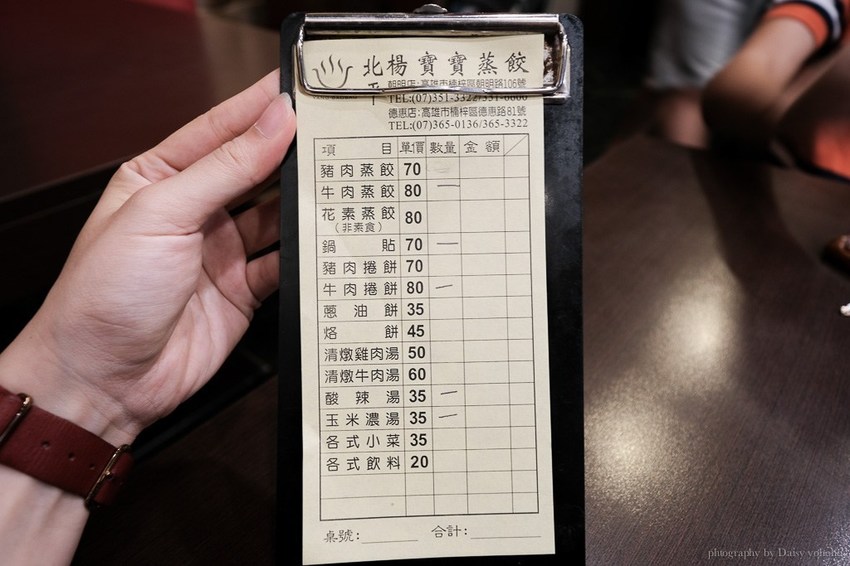 北楊寶寶蒸餃
平 朝明店:高雄市楠梓區朝明路106號
TEL:(07)351-3322/351-6600
德惠店:高雄市楠梓區德惠路81號
TEL:(07)365-0136/365-3322
項目 單價 數量 金額
豬肉蒸餃 70
牛肉蒸餃 80 一
花素蒸餃 80
(非素食)
鍋貼 70 一
豬肉捲餅 70
牛肉捲餅 80 一
蔥油餅 35
烙餅 45
清燉雞肉湯 50
清燉牛肉湯 60
酸辣湯 35 一
玉米濃湯 35 一
各式小菜 35
各式飲料 20
桌號: 合計:
photography by Daisy